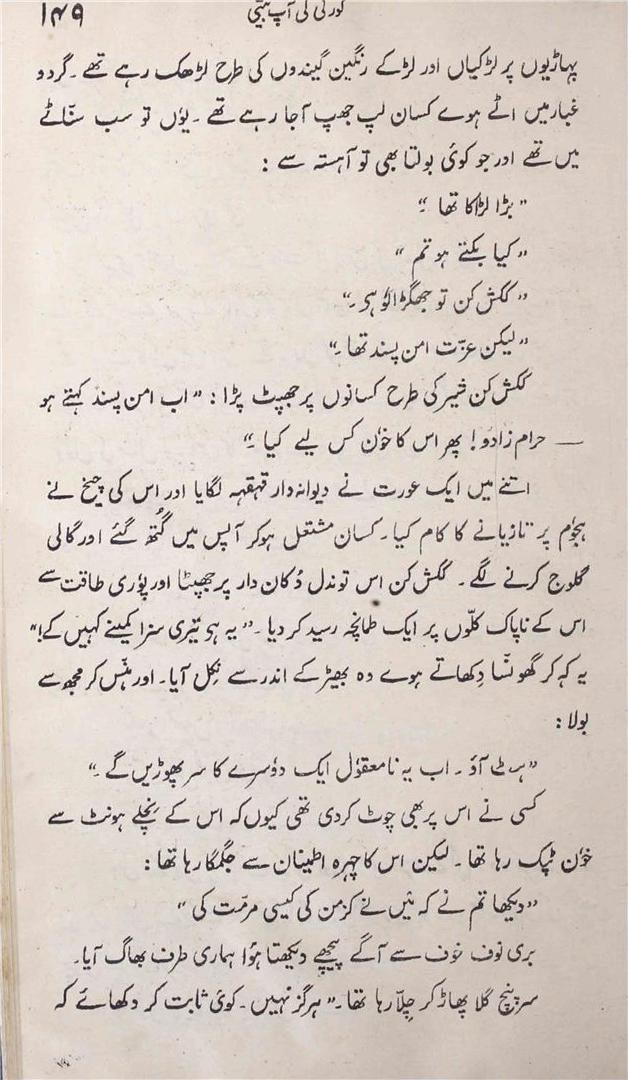 ۱۴۹ گورکی کی آپ بیتی
پہاڑیوں پر لڑکیاں اور لڑکے رنگین گیندوں کی طرح لڑھک رہے تھے ۔ گرد و
غبار میں اٹے ہوے کسان لپ جھپ آجا رہے تھے ۔ یوٗں تو سب سنّاٹے
میں تھے اور جو کوئی بولتا بھی تو آہستہ سے :
”بڑا لڑاکا تھا ۔“
”کیا بکتے ہو تم “
”ککش کن تو جھگڑالوٗ ہی ۔“
”لیکن عزّت امن پسند تھا ۔“
ککش کن شیر کی طرح کسانوں پر جھپٹ پڑا : ”اب امن پسند کہتے ہو
— حرام زادو! پھر اس کا خوٗن کس لیے کیا ۔“
اتنے میں ایک عورت نے دیوانہ وار قہقہہ لگایا اور اس کی چیخ نے
ہجوٗم پر تازیانے کا کام کیا ۔ کسان مشتعل ہوکر آپس میں گُتھ گئے اور گالی
گلوج کرنے لگے ۔ ککش کن اس توندل دُکان دار پر جھپٹا اور پوٗری طاقت سے
اس کے ناپاک کلّوں پر ایک طمانچہ رسید کر دیا ۔ ”یہ ہی تیری سزا کمینے کہیں کے!“
یہ کہہ کر گھونسا دِکھاتے ہوے وہ بھیڑ کے اندر سے نِکل آیا ۔ اور ہنس کر مجھ سے
بولا :
”ہٹ آؤ ۔ اب یہ نامعقوٗل ایک دوٗسرے کا سر پھوڑیں گے ۔“
کسی نے اس پر بھی چوٹ کردی تھی کیوں کہ اس کے نِچلے ہونٹ سے
خوٗن ٹپک رہا تھا ۔ لیکن اس کا چہرہ اطینان سے جگمگا رہا تھا :
”دیکھا تم نے کہ میں نے کزمن کی کیسی مرمّت کی “
بری نوف خوف سے آگے پیچھے دیکھتا ہوٗا ہماری طرف بھاگ آیا ۔
سرپنچ گلا پھاڑ کر چلّا رہا تھا ۔ ”ہرگز نہیں ۔ کوئی ثابت کر دکھائے کہ